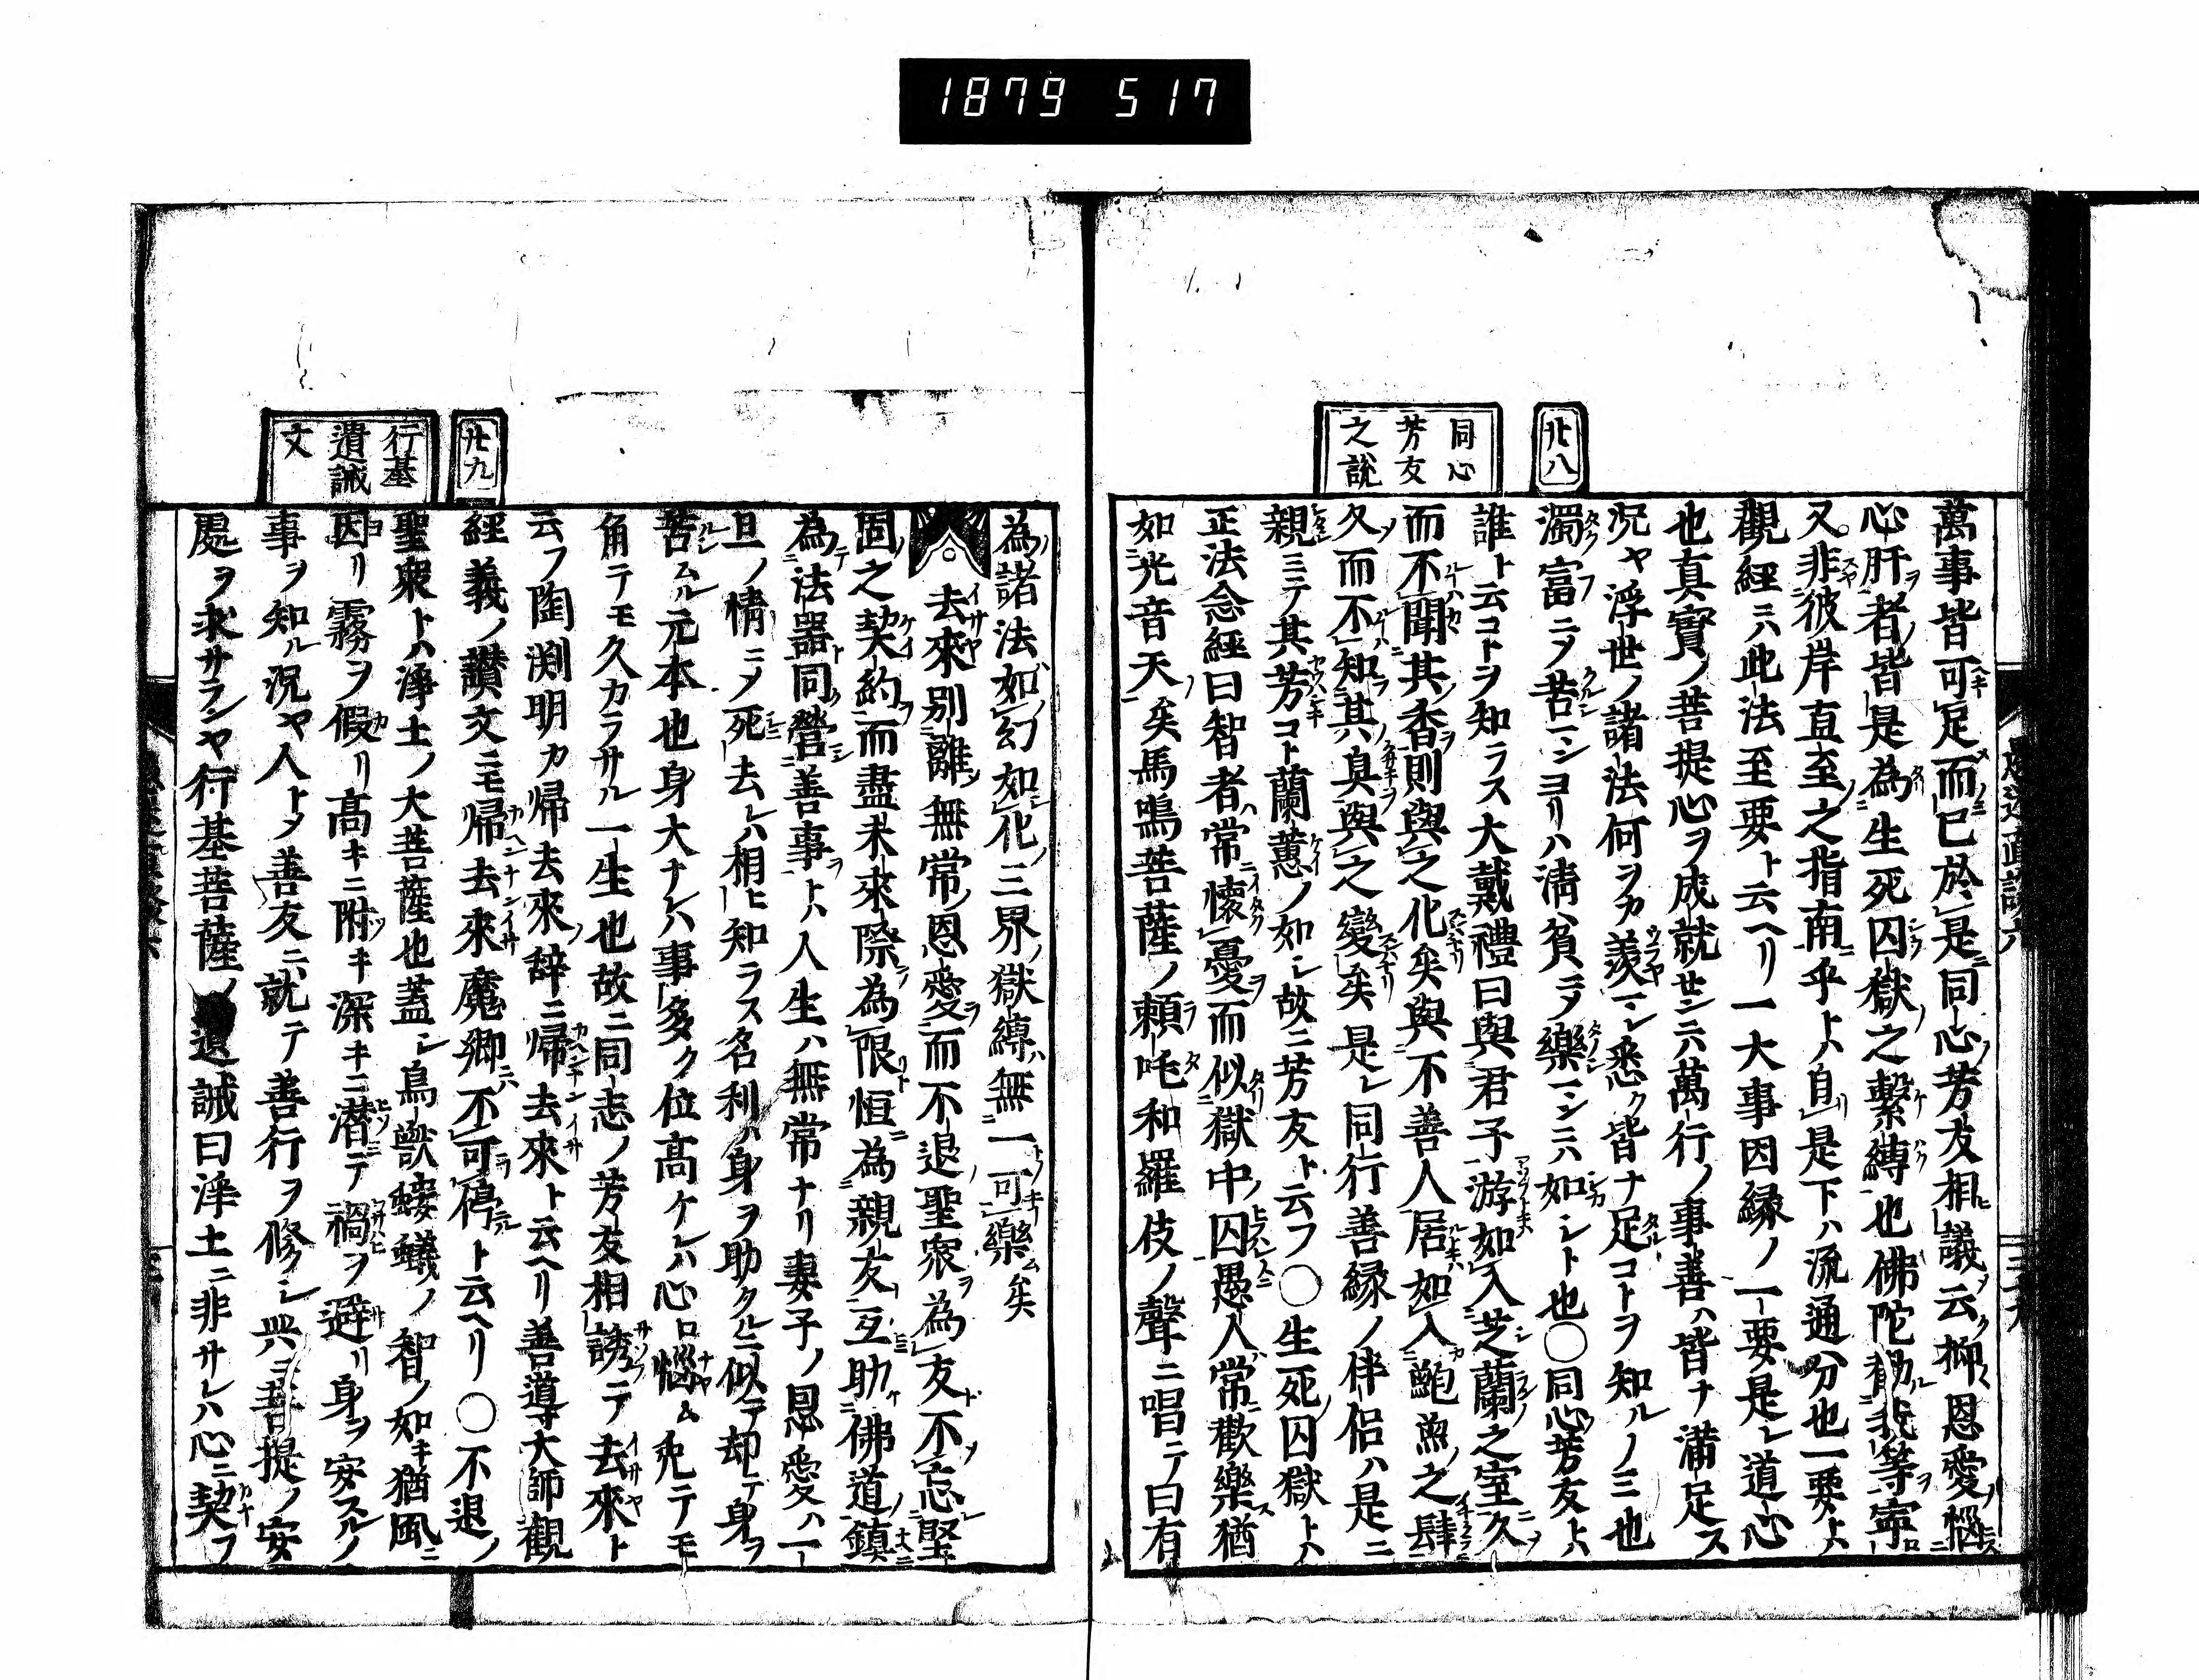 1879 517
廿八
同心
芳友
之說
萬事皆可足而已於是同心芳友相議云抑恩愛惱
心肝者皆是為生死囚獄之繫縛也佛陀勸我等寧
又非彼岸直至之指南乎トハ自是下ハ流通分也一要トハ
觀經ニハ此法至要ト云ヘリ一大事因縁ノ一要是レ道心
也真實ノ菩提心ヲ成就センニハ萬行ノ事善ハ皆ナ滿足ス
況ヤ浮世ノ諸法何ヲカ羨マン悉ク皆ナ足コトヲ知ルノミ也
濁富ニシテ苦マンヨリハ淸貧ニシテ樂マンニハ如シト也〇同心芳友トハ
誰ト云コトヲ知ラス大戴禮曰與君子游如入芝蘭之室久
而不聞其香則與之化矣與不善人居如入鮑魚之肆
久而不知其臭與之變矣是レ同行善縁ノ伴侶ハ是ニ
親ミテ其芳コト蘭蕙ノ如シ故ニ芳友ト云フ〇生死囚獄トハ
正法念經曰智者常懷憂而似獄中囚愚人常歡樂猶
如光音天矣馬鳴菩薩ノ頼吒和羅伎ノ聲ニ唱テ曰有
為諸法如幻如化三界獄縛無一可樂矣
去來別離無常恩愛而不退聖衆為友不忘堅
固之契約而盡未來際為限恒為親友互助佛道鎮
為法器同營善事トハ人生ハ無常ナリ妻子ノ恩愛ハ一
旦ノ情ニシテ死去レハ相ヒ知ラス名利ハ身ヲ助クルニ似テ却テ身ヲ
苦ムル元本也身大ナレハ事多ク位高ケレハ心ロ惱ム免テモ
角テモ久カラサル一生也故ニ同志ノ芳友相誘テ去來ト
云フ陶渕明カ帰去來辞ニ帰去來ト云ヘリ善導大師觀
經義ノ讚文ニモ帰去來魔郷ニハ不可停ト云ヘリ〇不退ノ
聖衆トハ淨土ノ大菩薩也蓋シ鳥獸螻蟻ノ智ノ如キ猶風ニ
因リ霧ヲ假リ高キニ附キ深キニ潜テ禍ヲ避リ身ヲ安スルノ
事ヲ知ル況ヤ人トシテ善友ニ就テ善行ヲ修シ與ニ菩提ノ安
處ヲ求サランヤ行基菩薩ノ遺誡曰淨土ニ非サレハ心ニ契フ
廿九
行基
遺誡
文